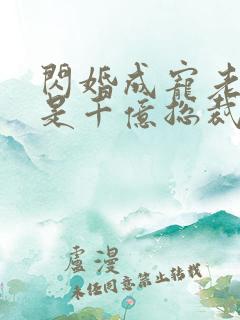 閃婚成寵老
是千億總裁
盧漫
未经同意禁止转载